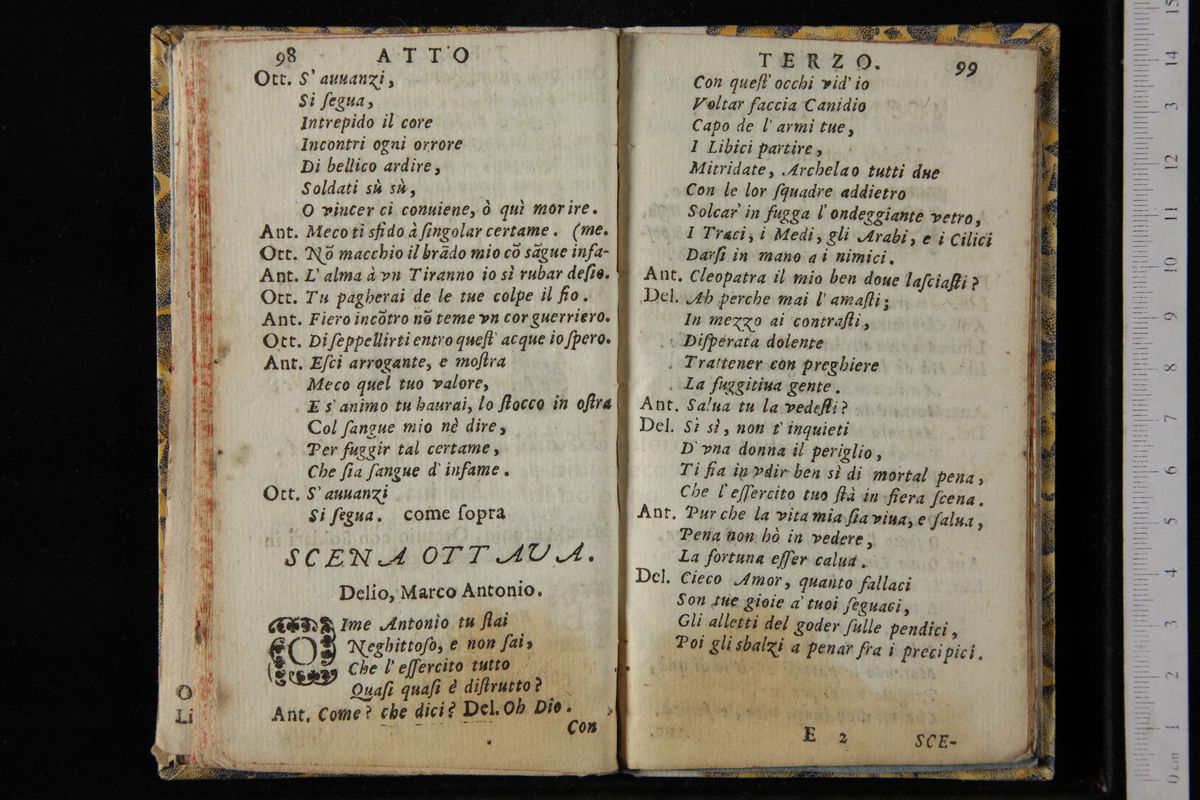 98 ATTO
Ott. S' auuanzi,
Si ſegua,
Intrepido il core
Incontri ogni orrore
Di bellico ardire,
Soldati sù sù,
O vincer ci conuiene, ò quì morire.
Ant. Meco ti sfido à ſingolar certame. (me.
Ott. Nõ macchio il brãdo mio cõ sãgue infa-
Ant. L' alma à vn Tiranno io sì rubar deſio.
Ott. Tu pagherai de le tue colpe il fio.
Ant. Fiero incõtro nõ teme vn cor guerriero.
Ott. Di ſeppellirti entro queſt' acque io ſpero.
Ant. Eſci arrogante, e moſtra
Meco quel tuo valore,
E s' animo tu haurai, lo ſtocco in oſtra
Col ſangue mio nè dire,
Per fuggir tal certame,
Che ſia ſangue d' infame.
Ott. S' auuanzi
Si ſegua. come ſopra
SCENA OTTAUA.
Delio, Marco Antonio.
OIme Antonio tu ſtai
Neghittoſo, e non ſai,
Che l' eſſercito tutto
Quaſi quaſi è diſtrutto?
Ant. Come? che dici? Del. Oh Dio.
Con
O
Li
TERZO. 99
Con queſt' occhi vid' io
Voltar faccia Canidio
Capo de l' armi tue,
I Libici partire,
Mitridate, Archelao tutti due
Con le lor ſquadre addietro
Solcar' in fugga l' ondeggiante vetro,
I Traci, i Medi, gli Arabi, e i Cilici
Darſi in mano a i nimici.
Ant. Cleopatra il mio ben doue laſciaſti?
Del. Ah perche mai l' amaſti;
In mezzo ai contraſti,
Diſperata dolente
Trattener con preghiere
La fuggitiua gente.
Ant. Salua tu la vedeſti?
Del. Sì sì, non t' inquieti
D' vna donna il periglio,
Ti ſia in vdir ben sì di mortal pena,
Che l' eſſercito tuo ſtà in fiera ſcena.
Ant. Pur che la vita mia ſia viua, e ſalua,
Pena non hò in vedere,
La fortuna eſſer calua.
Del. Cieco Amor, quanto fallaci
Son tue gioie a' tuoi ſeguaci,
Gli alletti del goder ſulle pendici,
Poi gli sbalzi a penar fra i precipici.
E 2 SCE-